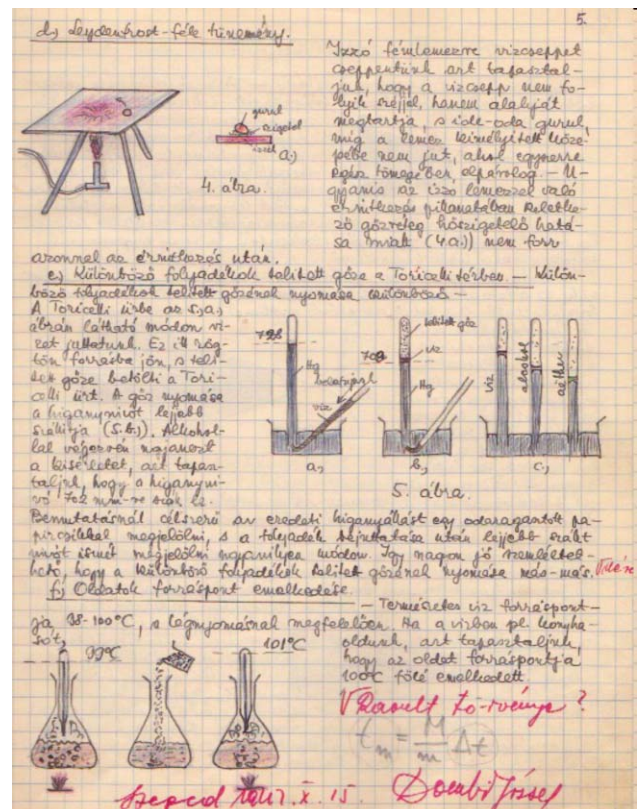 5.
d., Leydenfrost-féle tünemény.
Izzó fémlemezre vízcseppet
cseppentünk azt tapasztal-
juk, hogy a vízcsepp nem fo-
lyik széjjel, hanem alakját
megtartja, s ide-oda gurul,
míg a lemez kimélyített köze-
pébe nem jut, ahol egyszerre
egész tömegében elpárolog. – U-
gyanis az izzó lemezzel való
érintkezés pillanatában keletke-
ző gőzréteg hőszigetelő hatá-
sa miatt (4a.) nem forr
gurul
a.,
4. ábra.
azonnal az érintkezés után.
e., Különböző folyadékok telített gőze a Toricelli térben. – Külön-
böző folyadékok telített gőzének nyomása különböző –
A Toricelli űrbe az 5.a.,
ábrán látható módon vi-
zet juttatunk. Ez itt rög-
tön forrásba jön, s telí-
tett gőze betölti a Tori-
celli űrt. A gőz nyomása
a higanynívót lejjebb
szállítja (5.b.,). Alkohol-
lal végezvén ugyanezt
a kísérletet, azt tapasz-
taljuk, hogy a higanyní-
vó 702 mm-re
Hg
víz
a.,
telített gőz
víz
Hg
b.,
víz
alkohol
aether
c.,
5. ábra.
Bemutatásnál célszerű az eredeti higanyállást egy odaragasztott pa-
pírcsíkkal megjelölni, s a folyadék bejuttatása után lejjebb szállt
nívót ismét megjelölni ugyanilyen módon. Így nagyon jó szemléltet-
hető hogy a különböző folyadékok telített gőzének nyomása más-más.
f., Oldatok forráspont emelkedése.
– Természetes víz forráspont-
ja 98-100°C, a légnyomásnak megfelelően. Ha a vízben pl. konyha-
sót,
oldunk, azt tapasztaljuk,
hogy az oldat forráspontja
100°C fölé emelkedett
99°C
101°C
Raoult törvénye?
t_m = M/m Δt
Szeged 1947. X. 15. Dombi József